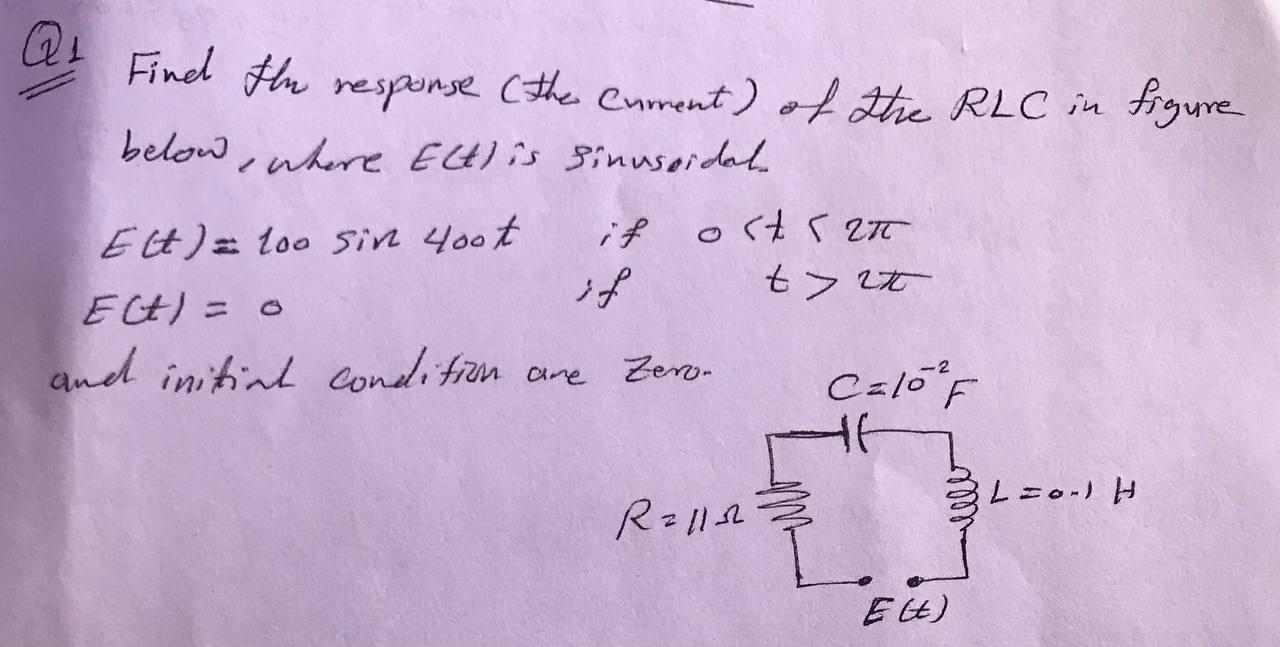 Q1 Find the response (the current) of the RLC in figure
below, where E(t) is sinusoidal.
E(t) = 100 sin 400t if 0 < t < 2π
E(t) = 0 if t > 2π
and initial condition are zero.
C = 10⁻² F
R = 11 Ω
L = 0.1 H
E(t)